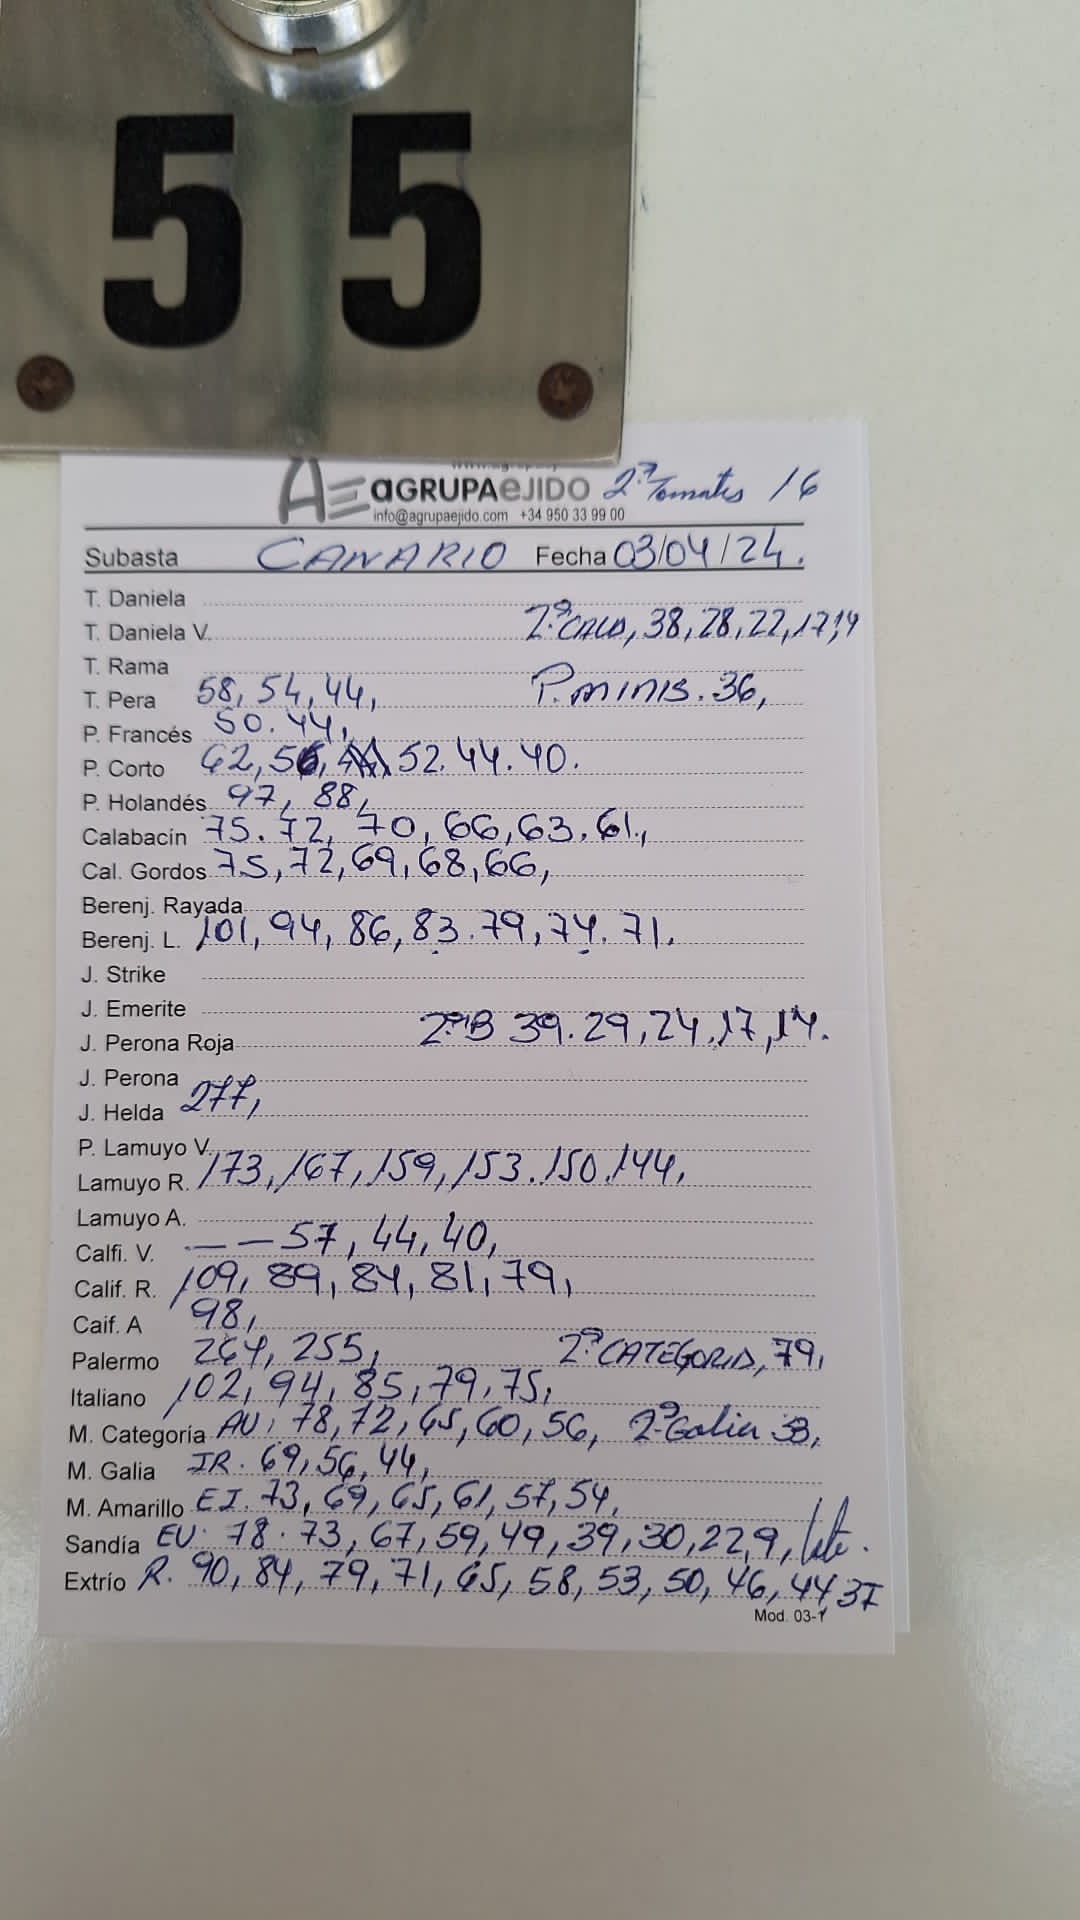 55
AE aGRUPAeJIDO 2ª Tomates 16
info@agrupaejido.com +34 950 33 99 00
Subasta CANARIO Fecha 03/04/24.
T. Daniela
T. Daniela V. 2ª CALA, 38, 28, 22, 17, 14
T. Rama
T. Pera 58, 54, 44, P. MINIS. 36,
P. Francés 50. 44,
P. Corto 62, 56, 52. 44. 40.
P. Holandés 97, 88,
Calabacín 75. 72, 70, 66, 63, 61,
Cal. Gordos 75, 72, 69, 68, 66,
Berenj. Rayada
Berenj. L. 101, 94, 86, 83. 79, 74. 71.
J. Strike
J. Emerite
J. Perona Roja 2ª B 39. 29, 24, 17, 14.
J. Perona
J. Helda 277,
P. Lamuyo V.
Lamuyo R. 173, 167, 159, 153. 150, 144,
Lamuyo A.
Calfi. V. — — 57, 44, 40,
Calif. R. 109, 89, 84, 81, 79,
Caif. A 98,
Palermo 264, 255, 2ª CATEGORIA, 79,
Italiano 102, 94, 85, 79, 75,
M. Categoría AU, 78, 72, 65, 60, 56, 2ª Galia 38,
M. Galia IR. 69, 56, 44,
M. Amarillo EJ. 73, 69, 65, 61, 57, 54,
Sandía EU. 78. 73, 67, 59, 49, 39, 30, 22, 9,
Extrío R. 90, 84, 79, 71, 65, 58, 53, 50, 46, 44, 37
Mod. 03-1